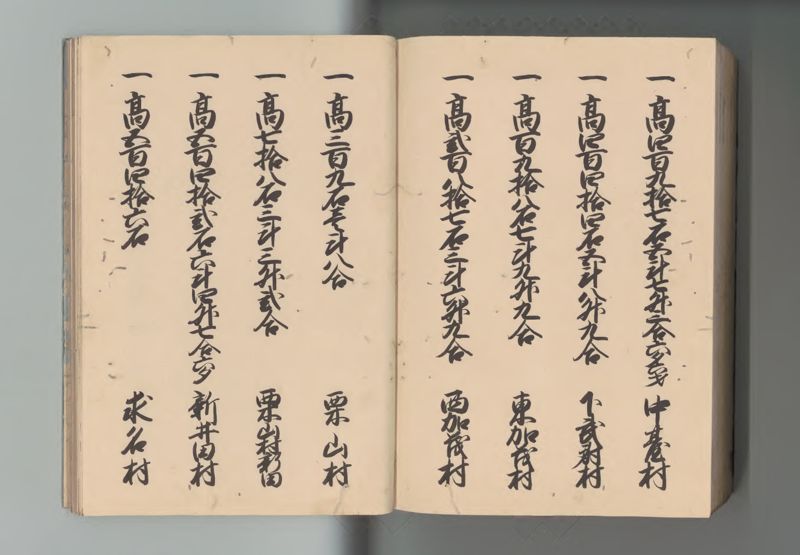 一 高四百九拾七石壱斗七升二合六夕 中台村
一 高四百四拾四石五斗八升九合 下武射村
一 高百九拾八石七斗九升九合 東加茂村
一 高弐百八拾七石三斗六升九合 西加茂村
一 高二百九石壱斗八合 栗山村
一 高七拾八石三斗三升弐合 栗山村新田
一 高五百四拾弐石六斗四升七合六夕 新井田村
一 高五百四拾六石 求名村